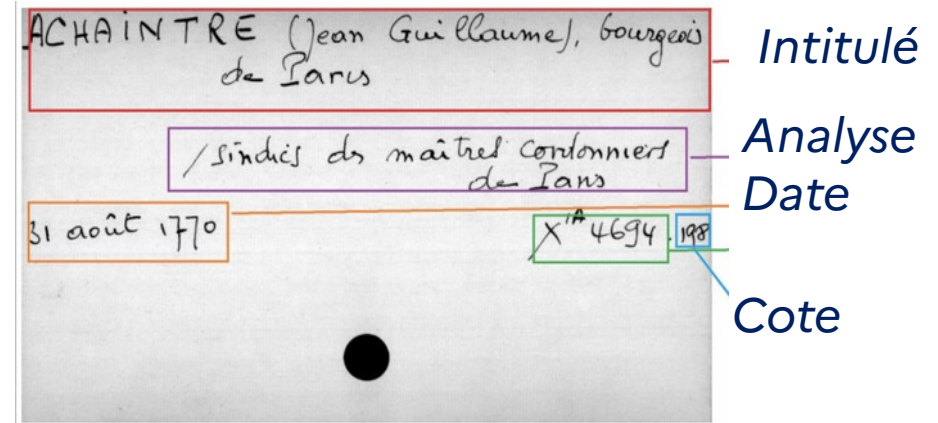 ACHAINTRE (Jean Guillaume), bourgeois
de Paris
Intitulé
/ sindics ds maîtres cordonniers
de Paris
Analyse
Date
31 août 1770
X1A 4694. 198
Cote